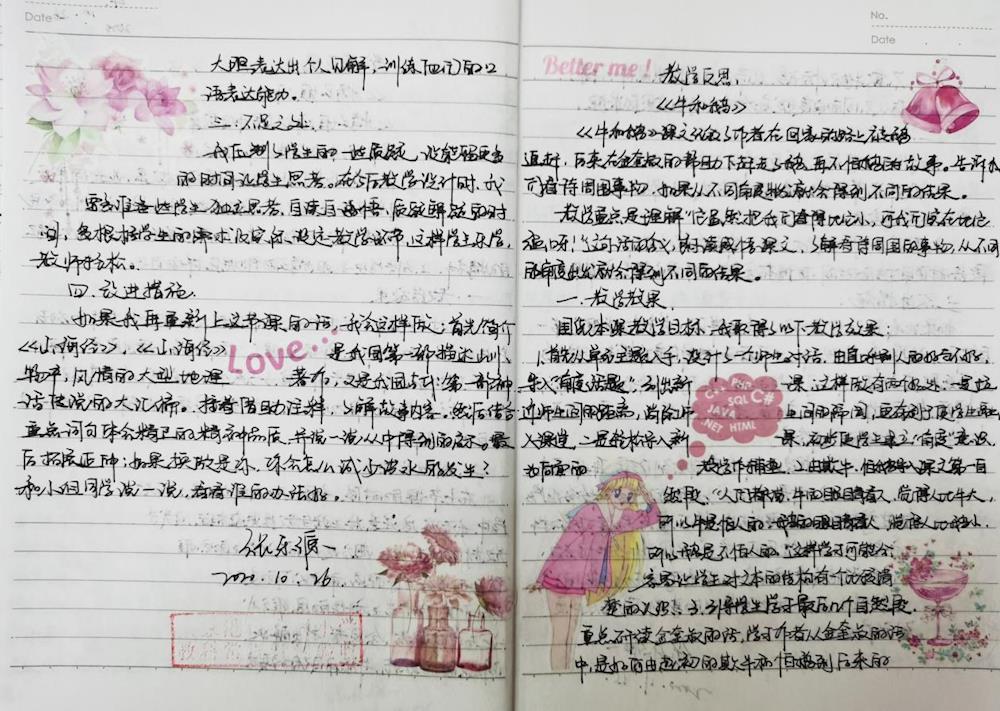 Date
大胆表达出个人见解,训练的口
语表达能力。
三、不足之处
我压制了学生的一些质疑,没能留更多
的时间让学生思考。在今后教学设计时,我
要多准备些学生独立思考、自读自悟、质疑解疑的时
间,多根据学生的需求设定教学环节,这样学生乐学,
教师轻松。
四、改进措施
如果我再重新上这节课的话,我会这样做:首先简介
《山海经》,《山海经》是我国第一部描述山川、
物产,风情的大型地理著作,又是我国古代第一部神
话传说的大汇编。接着借助注释,了解故事内容。然后结合
重点词句体会精卫的精神品质,并说一说从中得到的启示。最
后拓展延伸:如果换做是你,你会怎么减少溺水的发生?
和小组同学说一说,看看谁的办法好。
2020.10.26
Love...
No.
Date
Better me!
教学反思
《牛和鹅》
《牛和鹅》课文讲了作者在回家的路上被鹅
追赶,后来在金奎叔的帮助下赶走了鹅,再不怕鹅的故事。告诉我
们看待周围事物,如果从不同角度就会得到不同的结果。
教学重点是理解“它虽然把我们看得比它小,可我们实在比它
强呀!”这句话的含义,有感情课文,了解看待周围的事物,从不同
的角度出发就会得到不同的结果。
一、教学效果
围绕本课教学目标,我取得了以下教学效果:
1.首先从单元主题入手,设计了一个师生对话,由直
导入“角度”话题,引出新课,这样做有两个好处:一是拉
近师生间的距离,消除师生间的隔阂,更有利于使学生融
入课堂,二是轻松导入新课,初步使学生建立“角度”意识,
为后面的教学作铺垫。2.由欺牛、怕鹅导入课文第一自
然段。“人们都说,牛的眼睛看人,觉得人比牛大,
所以牛是怕人的,鹅的眼睛看人,觉得人比鹅小,
所以鹅是不怕人的。”这样学习可能会
容易让学生对文本的结构有一个比较清
楚的认识。3.引导学生学习最后几个自然段。
重点研读金奎叔的话,学习作者从金奎叔的话
中,是如何由起初的欺牛和怕鹅到后来的
C++ PHP
SQL C#
JAVA
.NET HTML